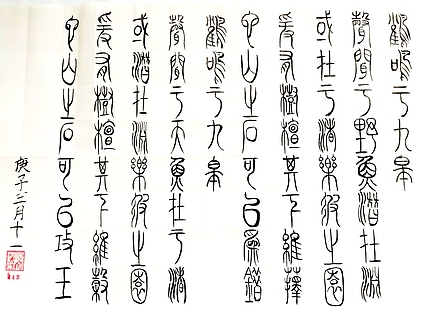 鶴鳴于九皋
聲聞于野魚潛在淵
或在于渚樂彼之園
爰有樹檀其下維蘀
它山之石可以爲錯
鶴鳴于九皋
聲聞于天魚在于渚
或潛在淵樂彼之園
爰有樹檀其下維穀
它山之石可以攻玉
庚子三月十一